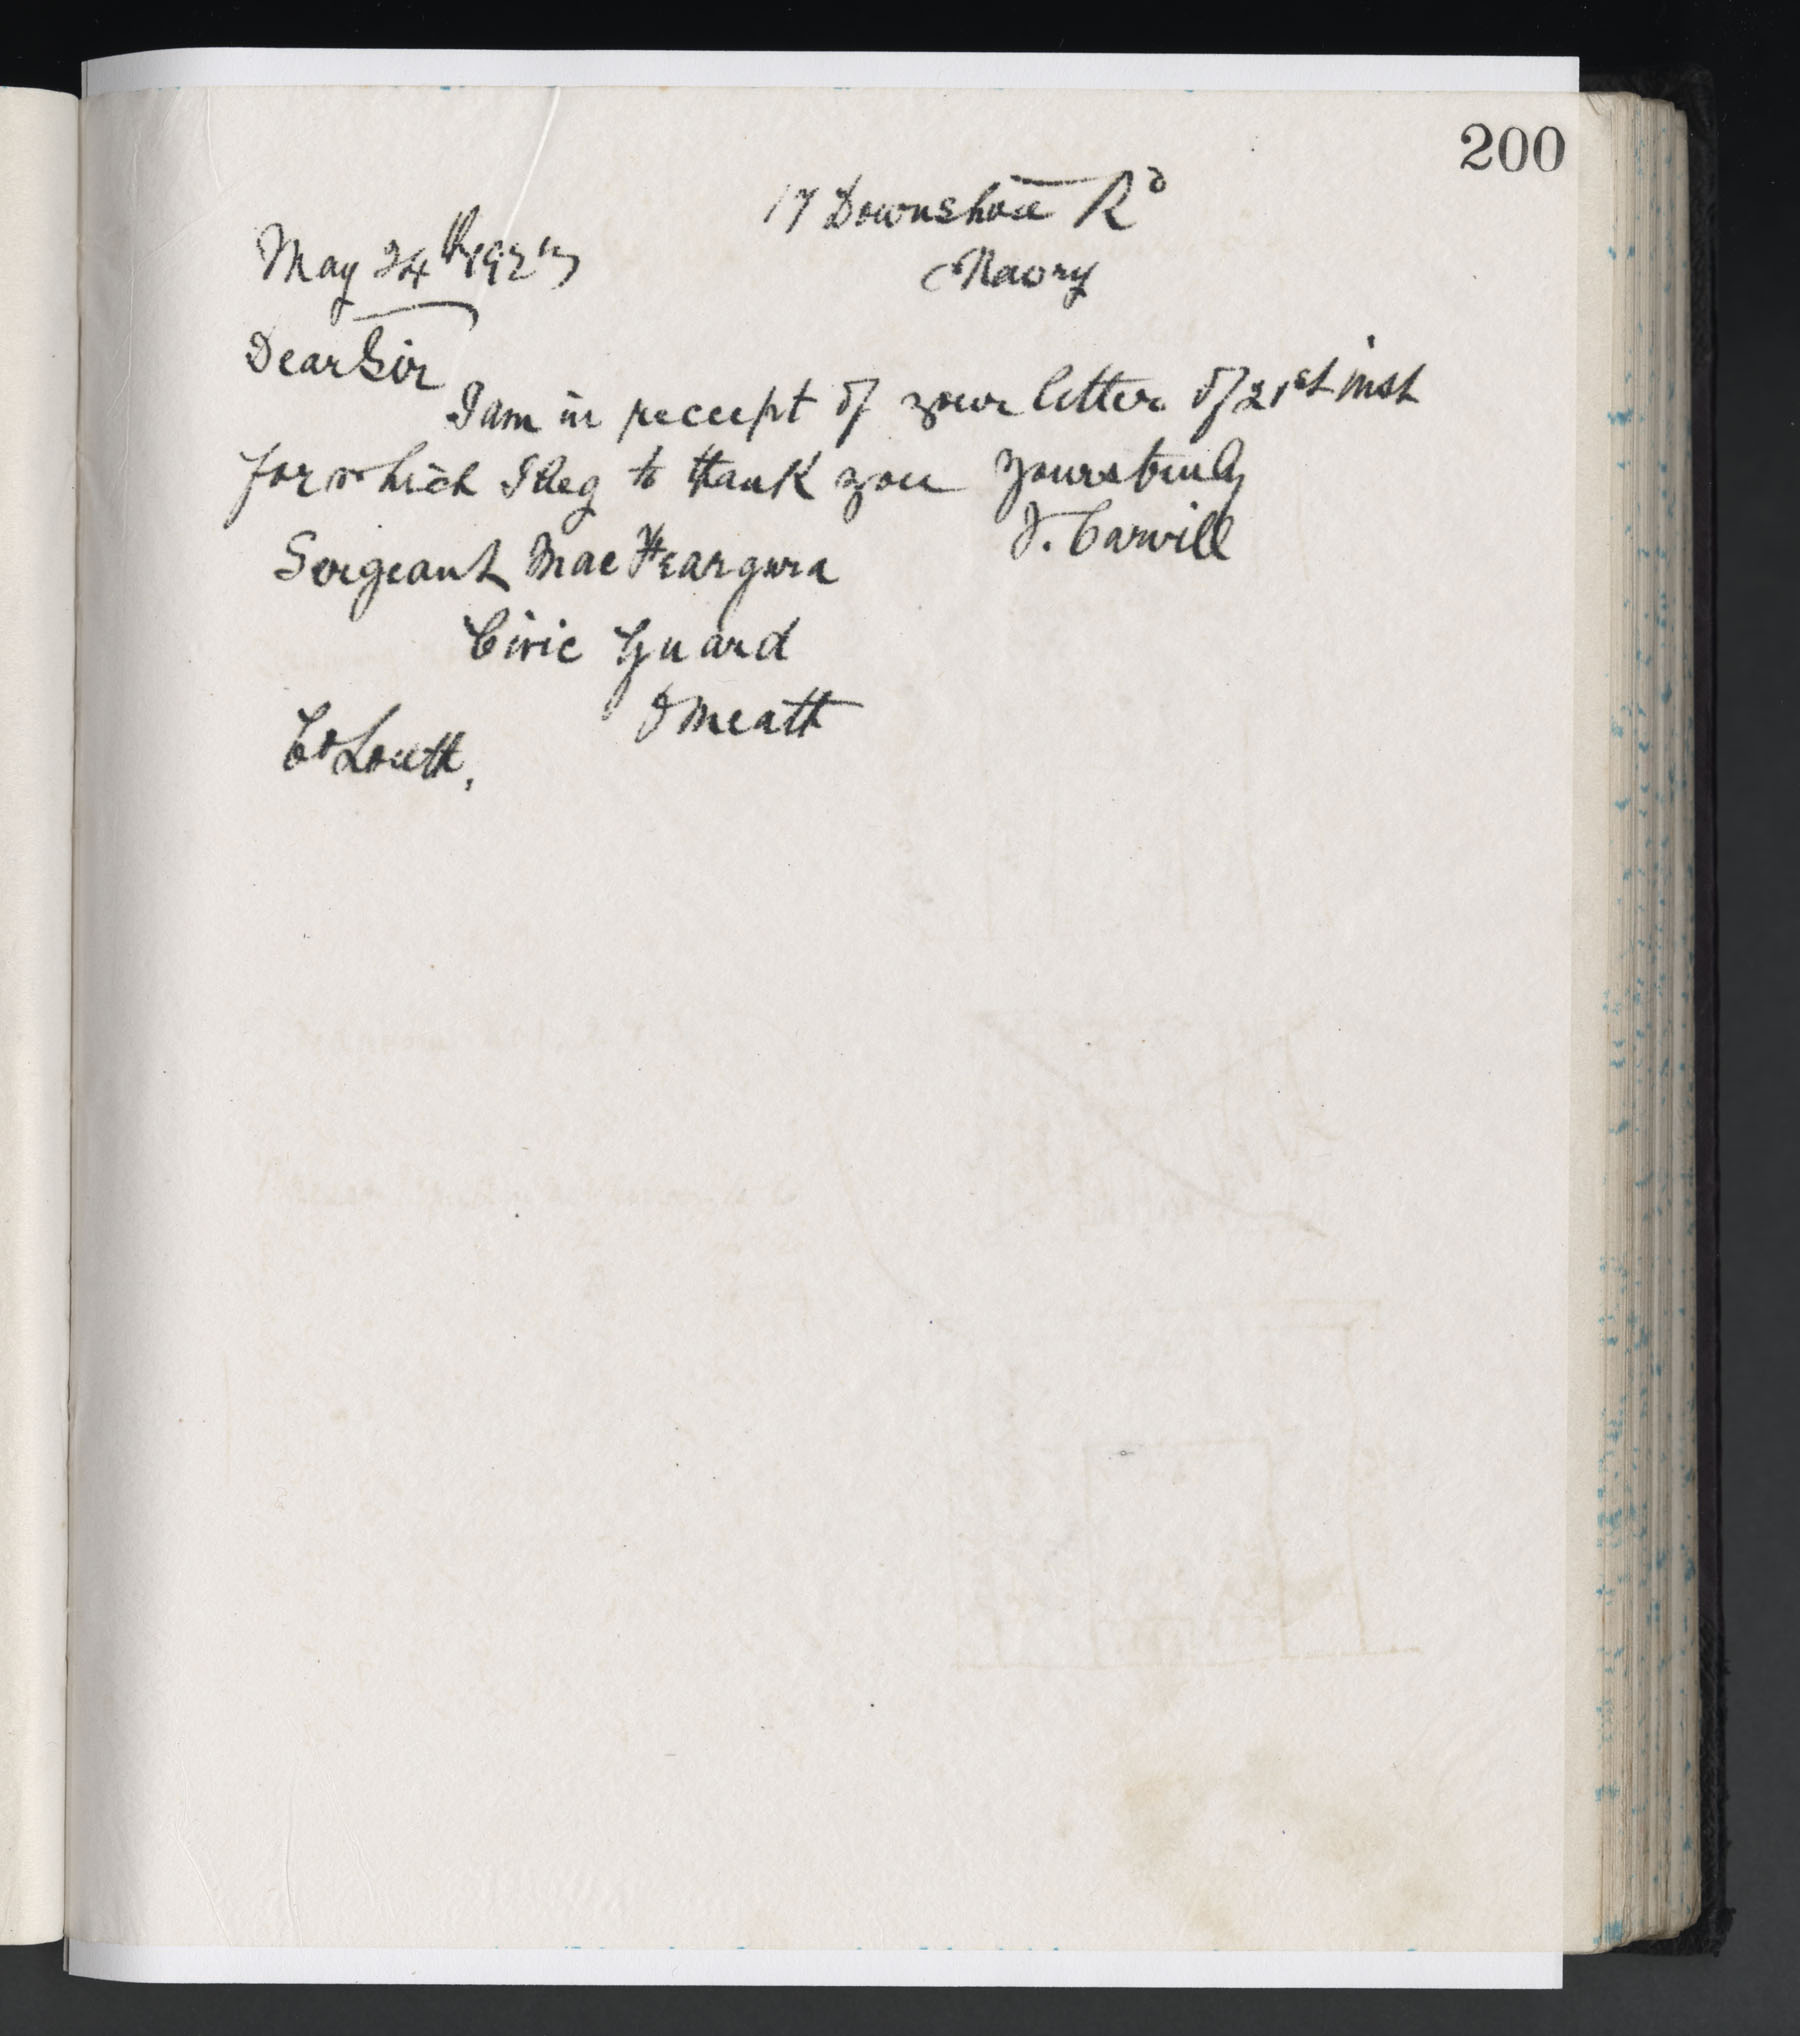 200
17 Downshire Rd
May 24th 192
Newry
Dear Sir
I am in receipt of your letter of 21st inst
for which I beg to thank you Yours truly
J. Carvill
Sergeant Mac
Civic Guard
Omeath
Co Louth,